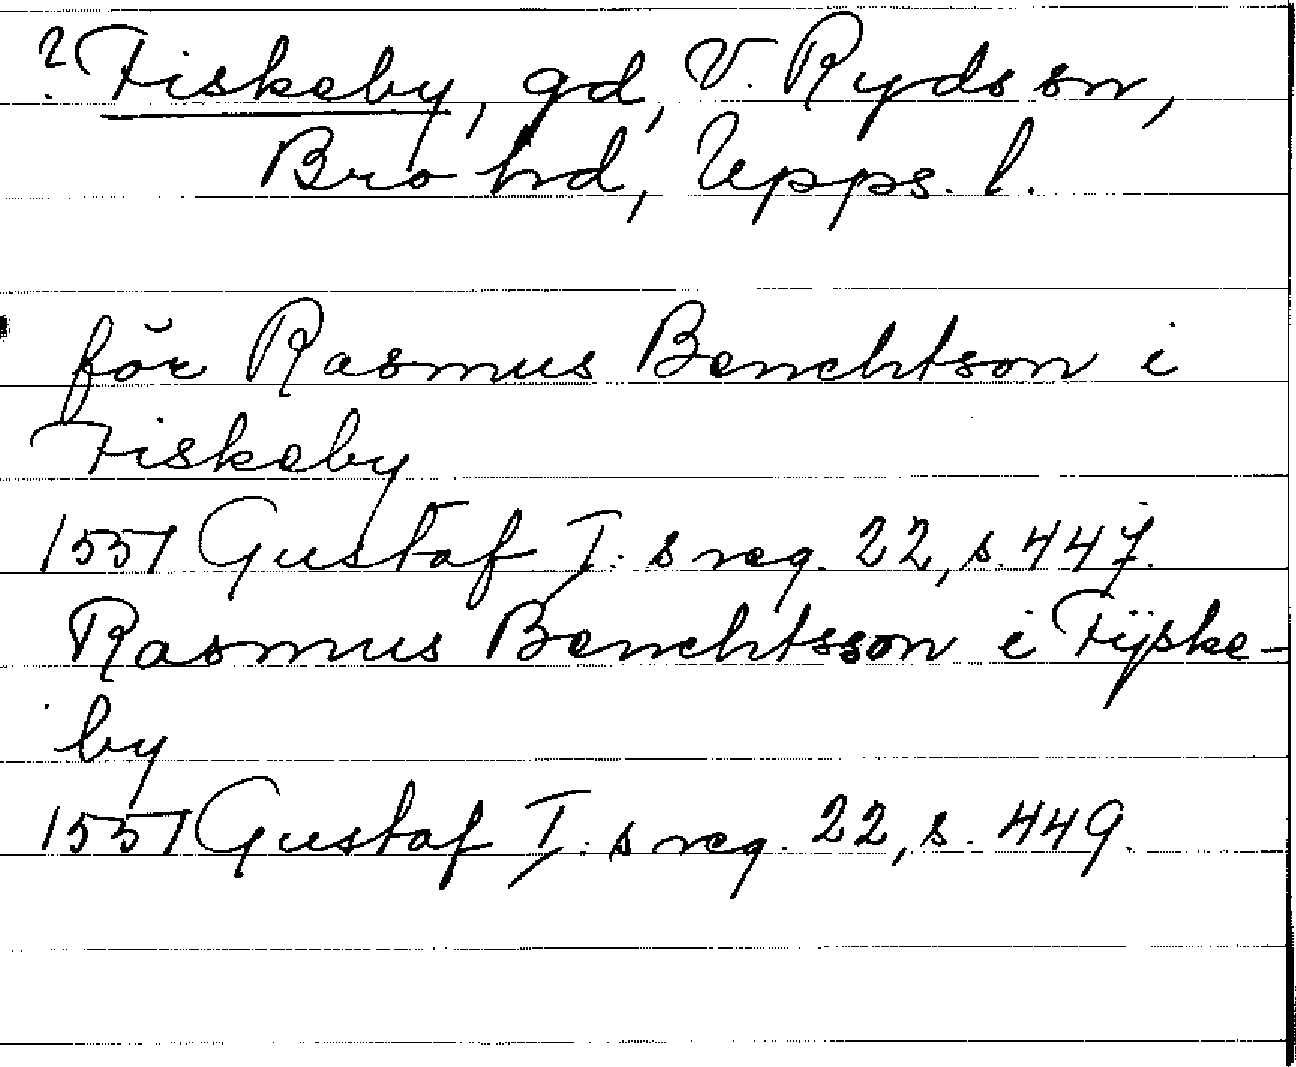 ? Fiskeby, gd, V. Ryds sn,
Bro hd, Upps. l.
för Rasmus Benchtson i
Fiskeby
1551 Gustaf I. s reg. 22, s. 447.
Rasmus Benchtsson i Fijske-
by
1551 Gustaf I. s reg. 22, s. 449.